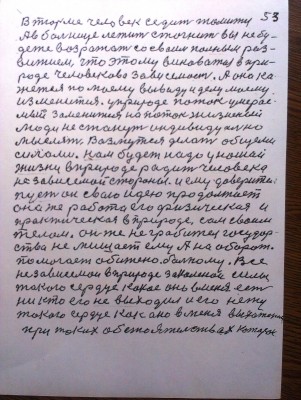 53
В тюрме человек седит томиту
А в болнице летит стогнит вы небу
дете возражат со своим полным раз-
витием, что этому виноватая в при-
роде человеково зависемост. А она ка
жется по моему выводу и делу моему
изменится. уприроде поток умерае-
мый заменится на поток жизненой
люди не станут индивидуално
мыслят. Возмутся делат общеми
силами. Нам будет надо у нашой
жизни в природе родит человека
не зависемой стороны. и ему доверитем
пуст он сваю идею продолжает
она же работа его физическая и
практическая в природе, сам своим
телом. он же не грабител государ-
ства не мищает ему А на оборот
помогает обижено. болному. Все
независемои в природе законое силы
такого сердце какое оно в меня ест
ни кто его не выходил и его нету
такого сердце как оно в меня
при таких обстоятелствах которое